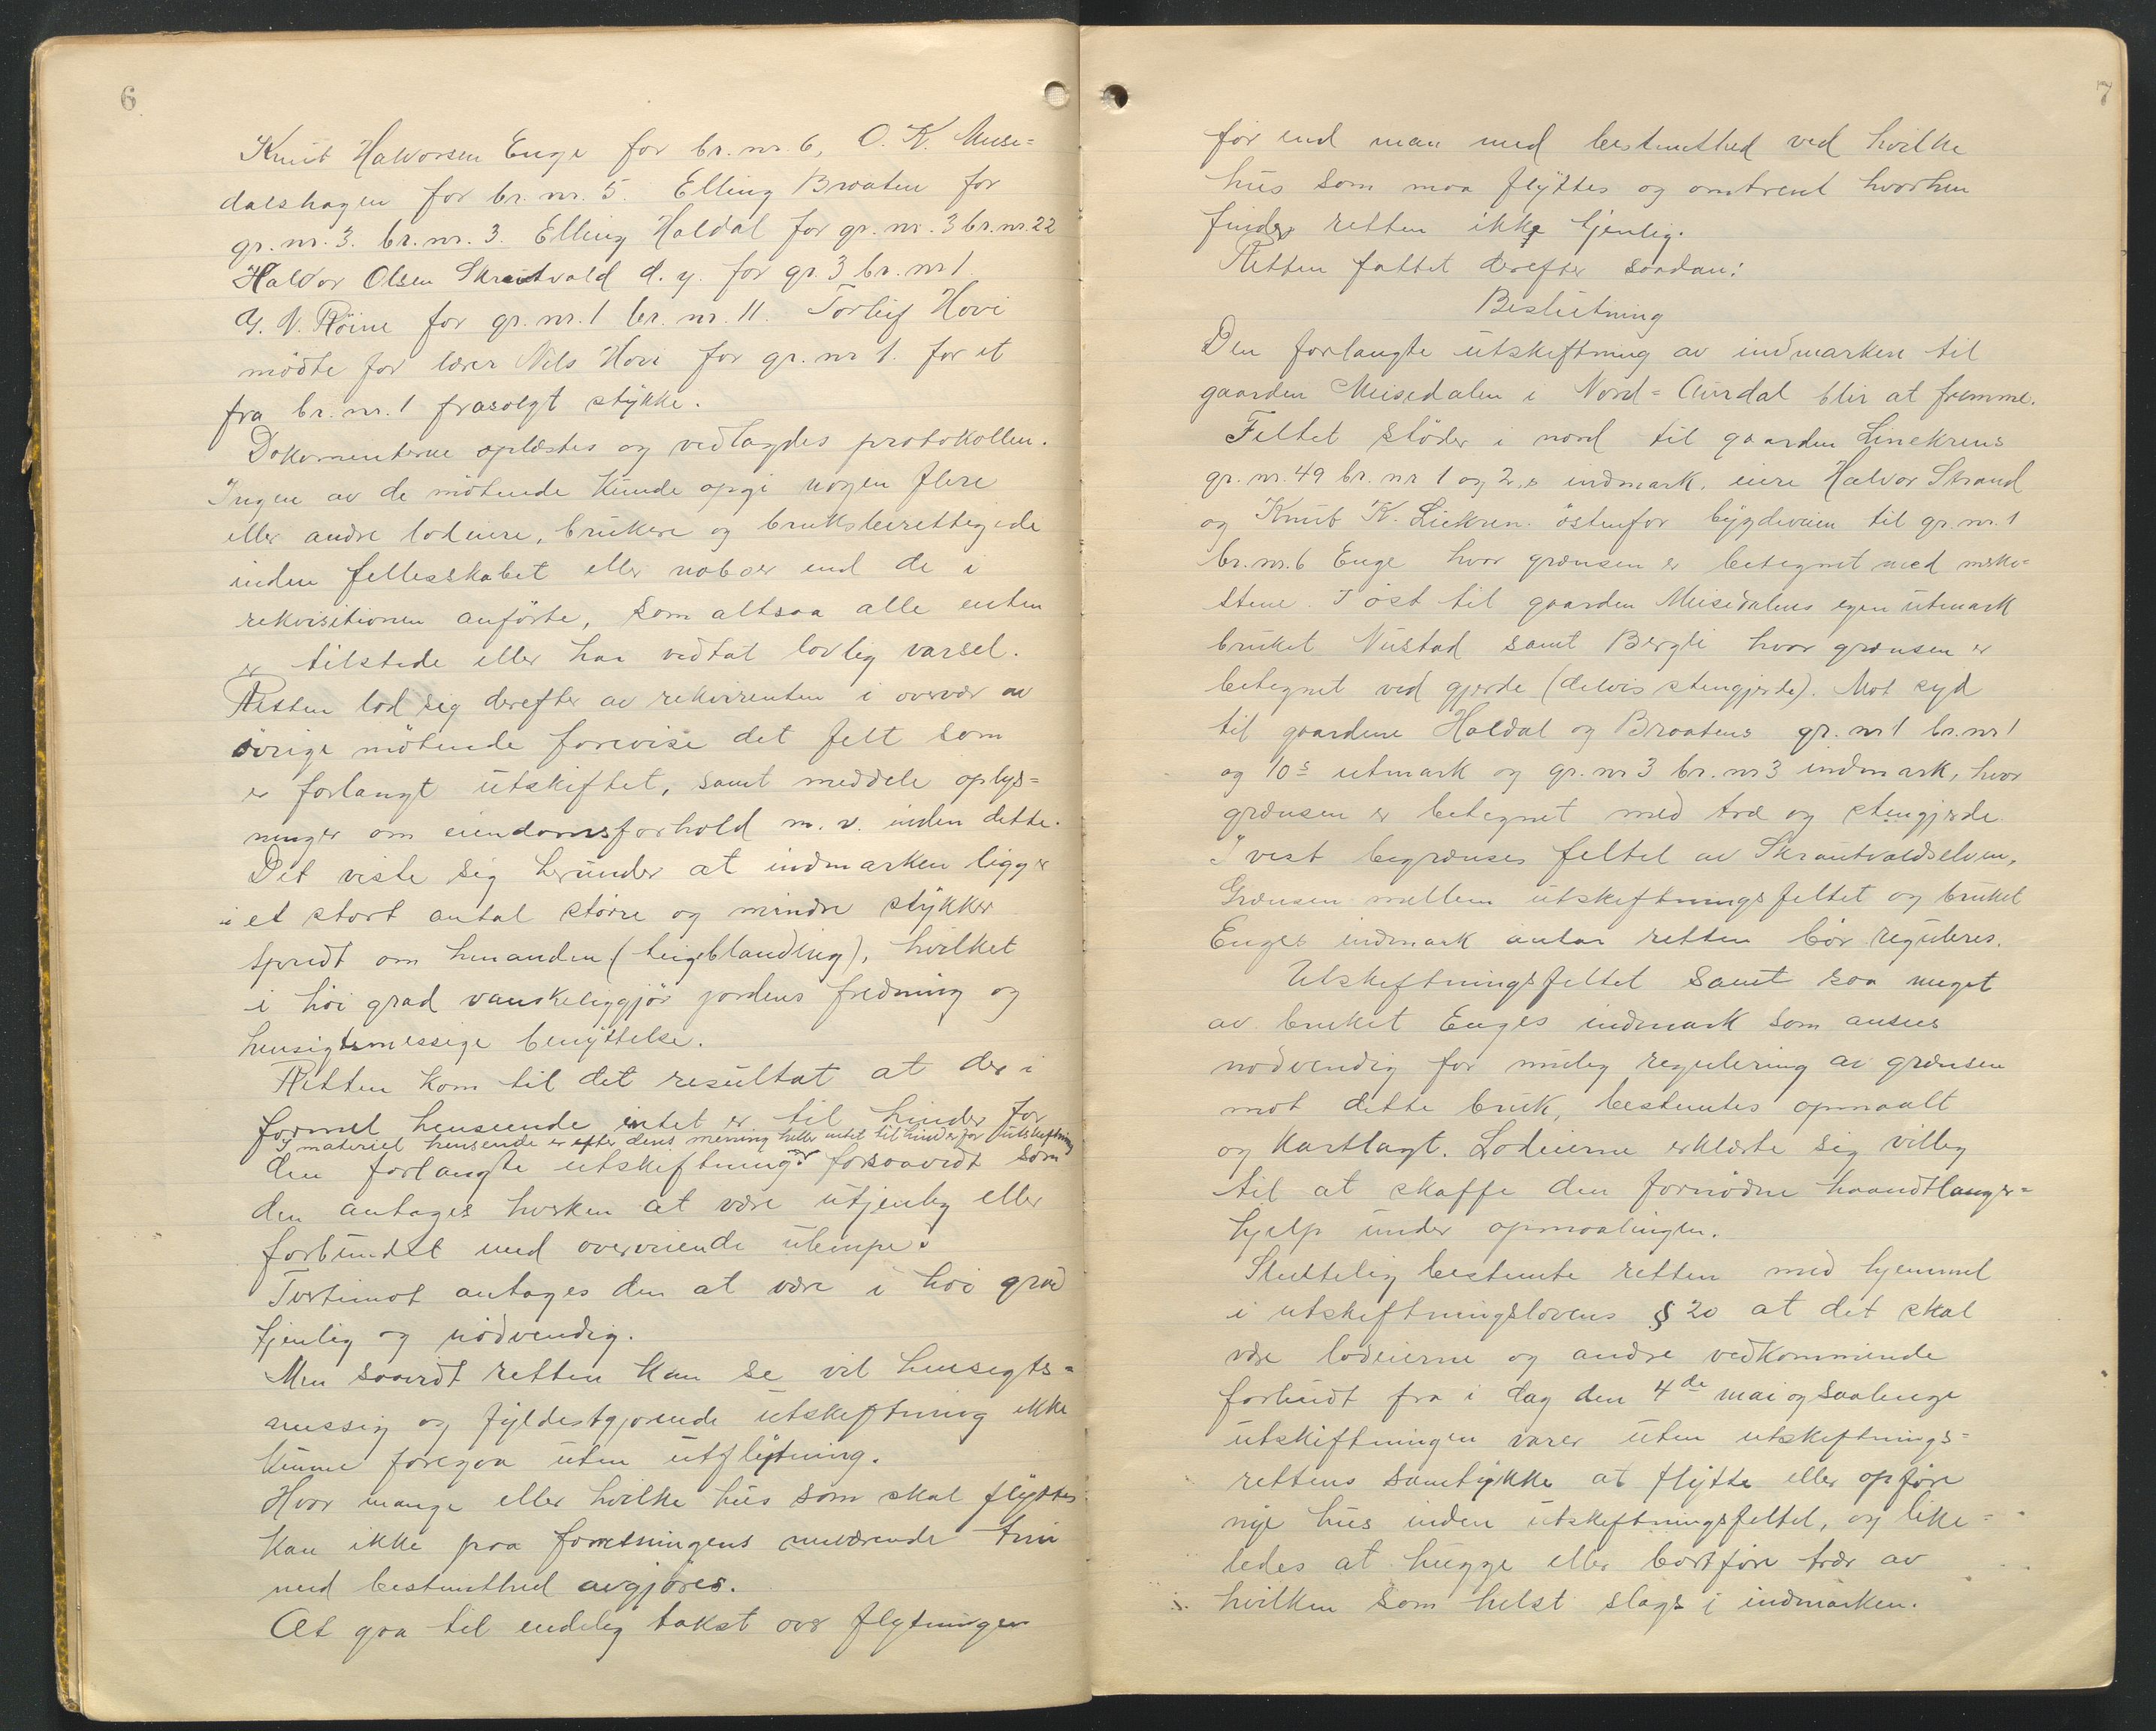 6
Knut Halvorsen Enge for br. nr. 6, O. K. Muse=
dalshagen for br. nr. 5. Elling Braaten for
gr. nr. 3. br. nr. 3. Elling Haldal for gr. nr. 3 br. nr. 22
Halvor Olsen Skrautvald d. y. for gr. 3 br. nr 1.
G. N. Röine for gr. nr. 1 br. nr. 11. Torleif Hovi
mödte for lærer Nils Hovi for gr. nr 1. for et
fra br. nr. 1 frasolgt stykke.
Dokumenterne oplæstes og vedlagdes protokollen.
Ingen av de mötende kunde opgi nogen flere
eller andre lodeiere, brukere og bruksberettigede
inden fellesskabet eller naboer end de i
rekvisitionen anförte, som altsaa alle enten
er tilstede eller har vedtat lovlig varsel.
Retten lod sig derefter av rekvirenten i overvær av
övrige mötende forevise det felt som
er forlangt utskiftet, samt meddele oplys=
ninger om eiendomsforhold m. v. inden dette.
Det viste sig herunder at indmarken ligger
i et stort antal större og mindre stykker
spredt om hinanden (teigblanding), hvilket
i höi grad vanskeliggjör jordens fredning og
hensigtsmessige benyttelse.
Retten kom til det resultat at der i
formel henseende intet er til hinder for
I materiel henseende er efter dens mening heller intet til hinder for utskiftning
den forlangte utskiftning forsaavidt som
den antages hverken at være utjenlig eller
forbundet med overveiende ulempe.
Tvertimot antages den at være i höi grad
tjenlig og nödvendig.
Men saavidt retten kan se vil hensigts=
messig og fyldestgjörende utskiftning ikke
kunne foregaa uten utflytning.
Hvor mange eller hvilke hus som skal flyttes
kan ikke paa forretningens nuværende trin
med bestemthed avgjöres.
At gaa til endelig takst over flytningen
7
för end man med bestemthed ved hvilke
hus som maa flyttes og omtrent hvorhen
finder retten ikke tjenlig.
Retten fattet derefter saadan:
Beslutning
Den forlangte utskiftning av indmarken til
gaarden Meisedalen i Nord=Aurdal blir at fremme.
Feltet stöder i nord til gaarden Liekrens
gr. nr. 49 br. nr 1 og 2,s indmark, eiere Halvor Strand
og Knut K. Liekren. östenfor bygdeveien til gr. nr. 1
br. nr. 6 Enge hvor grænsen er betegnet med merke=
stene. I öst til gaarden Meisedalens egen utmark
bruket Nustad samt Bergli hvor grænsen er
betegnet ved gjerde (delvis stengjerde). Mot syd
til gaardene Haldal og Braatens gr. nr 1 br. nr 1
og 10s utmark og gr. nr 3 br. nr 3 indmark, hvor
grænsen er betegnet med træ og stengjerde.
I vest begrænses feltet av Skrautvaldselven.
Grænsen mellem utskiftningsfeltet og bruket
Enges indmark antar retten bör reguleres.
Utskiftningsfeltet samt saa meget
av bruket Enges indmark som ansees
nödvendig for mulig regulering av grænsen
mot dette bruk, bestemtes opmaalt
og kartlagt. Lodeierne erklærte sig villig
til at skaffe den fornödne haandtlanger=
hjelp under opmaalingen.
Sluttelig bestemte retten med hjemmel
i utskiftningslovens § 20 at det skal
være lodeierne og andre vedkommende
forbudt fra i dag den 4de mai og saalenge
utskiftningen varer uten utskiftnings=
rettens samtykke at flytte eller opföre
nye hus inden utskiftningsfeltet, og like=
ledes at hugge eller bortföre trær av
hvilken som helst slags i indmarken.